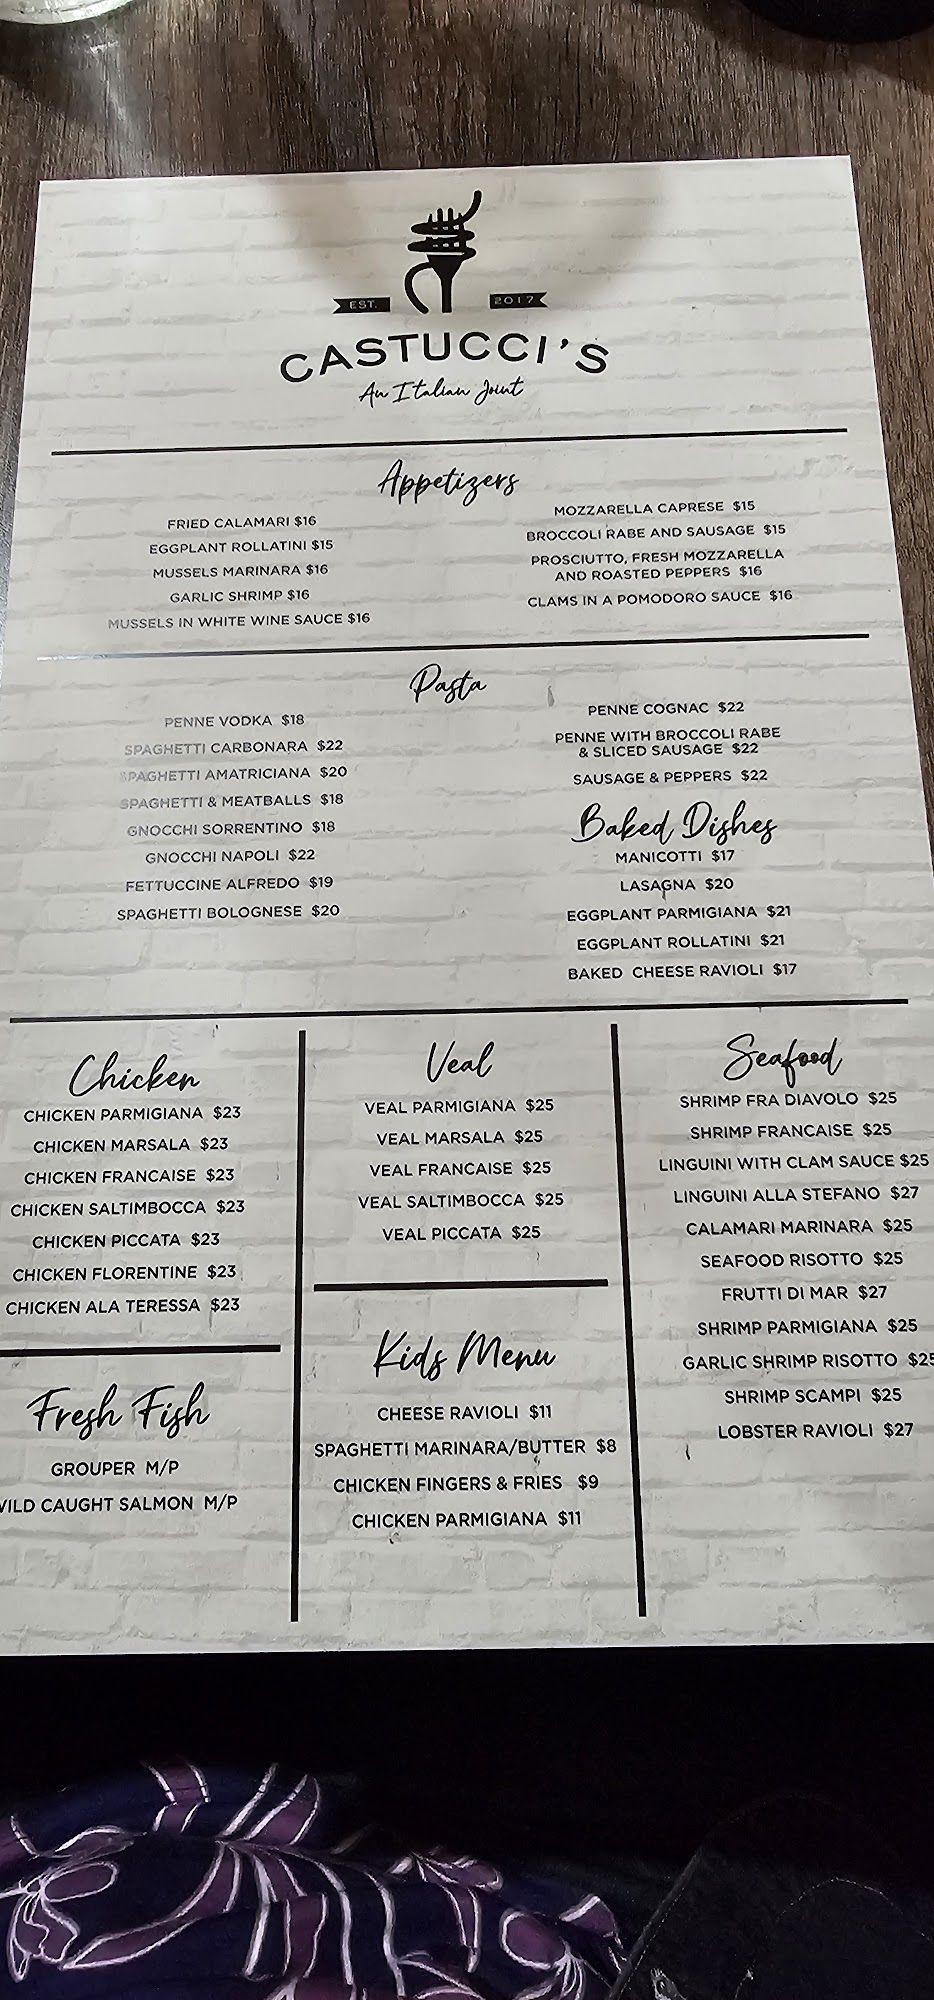 EST. 2017
CASTUCCI'S
An Italian Joint
Appetizers
FRIED CALAMARI $16
EGGPLANT ROLLATINI $15
MUSSELS MARINARA $16
GARLIC SHRIMP $16
MUSSELS IN WHITE WINE SAUCE $16
MOZZARELLA CAPRESE $15
BROCCOLI RABE AND SAUSAGE $15
PROSCIUTTO, FRESH MOZZARELLA
AND ROASTED PEPPERS $16
CLAMS IN A POMODORO SAUCE $16
Pasta
PENNE VODKA $18
SPAGHETTI CARBONARA $22
SPAGHETTI AMATRICIANA $20
SPAGHETTI & MEATBALLS $18
GNOCCHI SORRENTINO $18
GNOCCHI NAPOLI $22
FETTUCCINE ALFREDO $19
SPAGHETTI BOLOGNESE $20
PENNE COGNAC $22
PENNE WITH BROCCOLI RABE
& SLICED SAUSAGE $22
SAUSAGE & PEPPERS $22
Baked Dishes
MANICOTTI $17
LASAGNA $20
EGGPLANT PARMIGIANA $21
EGGPLANT ROLLATINI $21
BAKED CHEESE RAVIOLI $17
Chicken
CHICKEN PARMIGIANA $23
CHICKEN MARSALA $23
CHICKEN FRANCAISE $23
CHICKEN SALTIMBOCCA $23
CHICKEN PICCATA $23
CHICKEN FLORENTINE $23
CHICKEN ALA TERESSA $23
Fresh Fish
GROUPER M/P
WILD CAUGHT SALMON M/P
Veal
VEAL PARMIGIANA $25
VEAL MARSALA $25
VEAL FRANCAISE $25
VEAL SALTIMBOCCA $25
VEAL PICCATA $25
Kids Menu
CHEESE RAVIOLI $11
SPAGHETTI MARINARA/BUTTER $8
CHICKEN FINGERS & FRIES $9
CHICKEN PARMIGIANA $11
Seafood
SHRIMP FRA DIAVOLO $25
SHRIMP FRANCAISE $25
LINGUINI WITH CLAM SAUCE $25
LINGUINI ALLA STEFANO $27
CALAMARI MARINARA $25
SEAFOOD RISOTTO $25
FRUTTI DI MAR $27
SHRIMP PARMIGIANA $25
GARLIC SHRIMP RISOTTO $25
SHRIMP SCAMPI $25
LOBSTER RAVIOLI $27